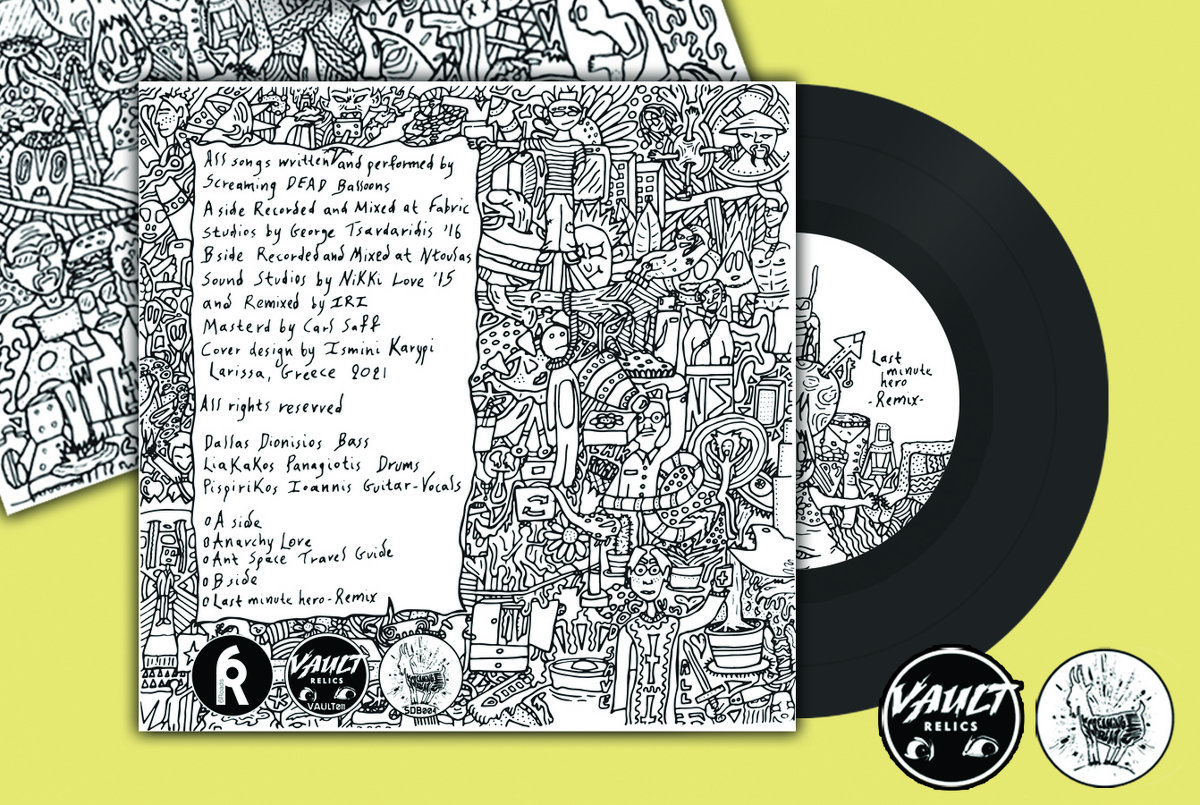 All songs written and performed by
Screaming DEAD Balloons
A side Recorded and Mixed at Fabric
Studios by George Tsardaridis '16
B side Recorded and Mixed at Ntousas
Sound Studios by Nikki Love '15
and Remixed by IRI
Masterd by Carl Saff
Cover design by Ismini Karypi
Larissa, Greece 2021
All rights reserved
Dallas Dionisios Bass
Liakakos Panagiotis Drums
Pispirikos Ioannis Guitar-Vocals
o A side
o Anarchy Love
o Ant Space Travel Guide
o B side
o Last minute hero - Remix
6R
VAULT
RELICS
VAULT011
SDB001
Last
minute
hero
-Remix-
VAULT
RELICS